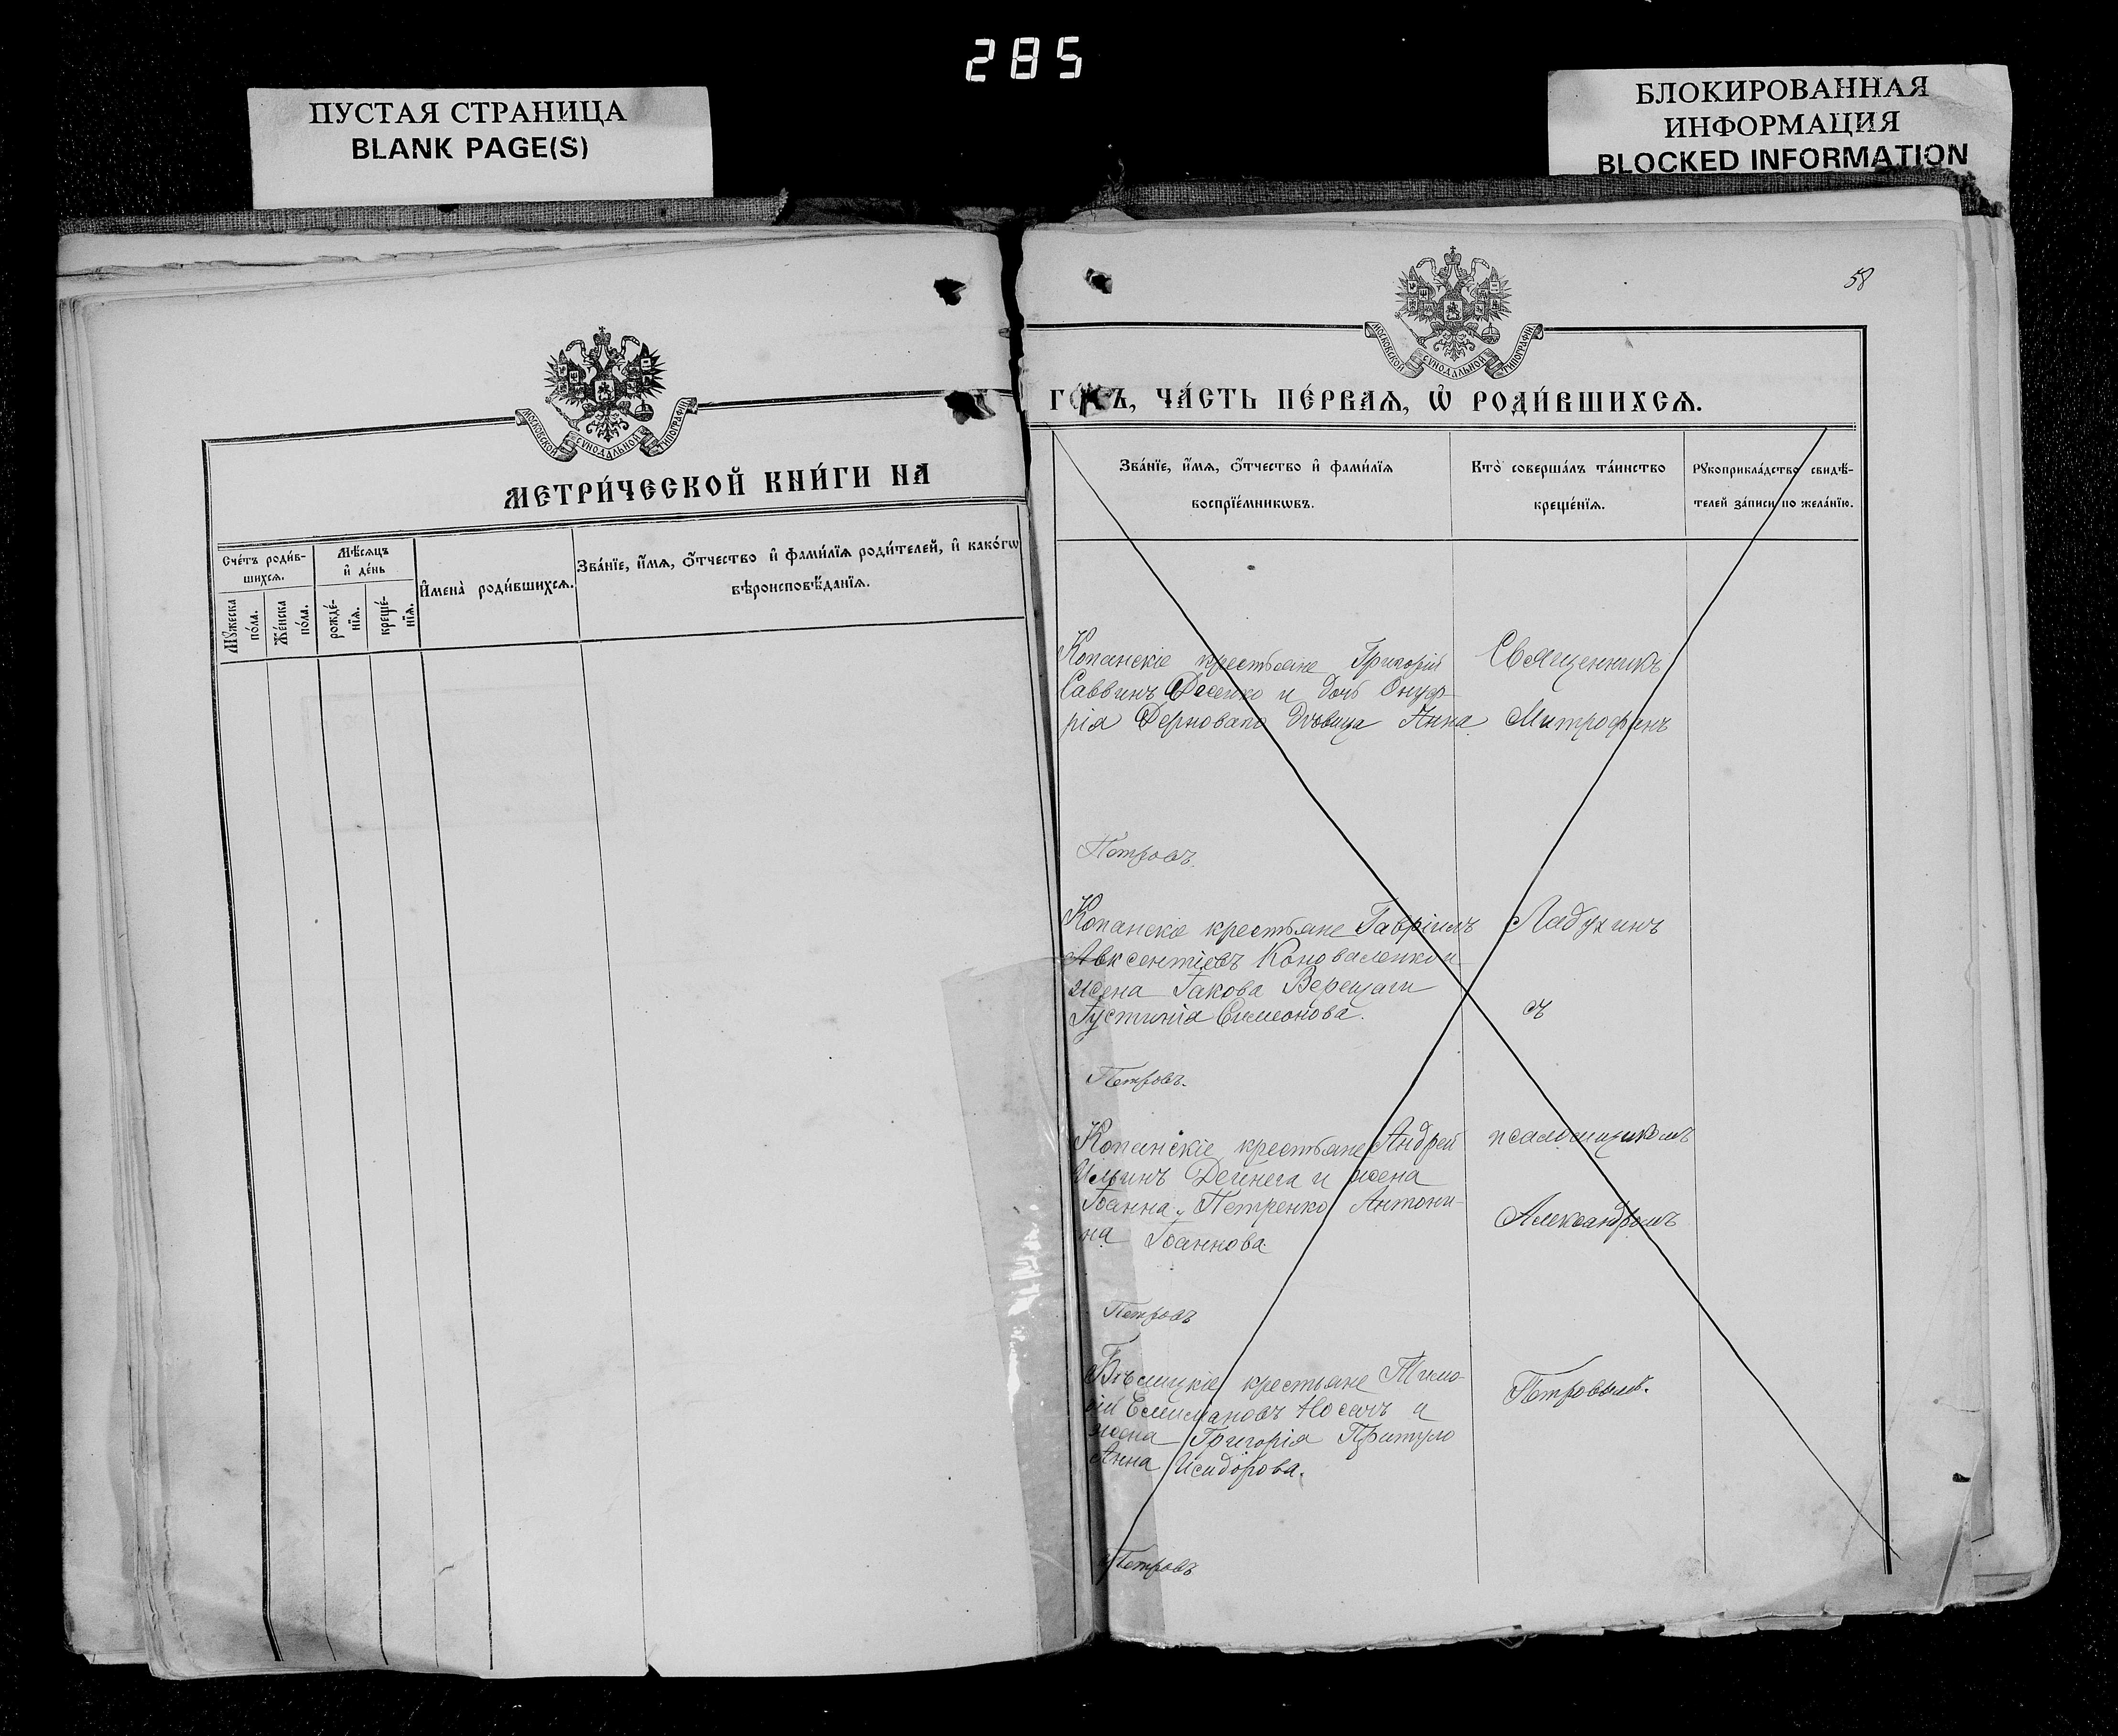 285
ПУСТАЯ СТРАНИЦА
BLANK PAGE(S)
БЛОКИРОВАННАЯ
ИНФОРМАЦИЯ
BLOCKED INFORMATION
МОСКОВСКОЙ СѴНОДАЛЬНОЙ ТИПОГРАФІИ
МЕТРИ́ЧЕСКОЙ КНИ́ГИ НА
Сче́тъ роди́в-
шихсѧ.
Мѣ́сѧцъ
и҆ де́нь
И҆мена̀ роди́вшихсѧ.
Зва́нїе, и҆́мѧ, ѻ҆́тчество и҆ фами́лїѧ роди́телей, и҆ како́гѡ
вѣроисповѣ́данїѧ.
Мꙋ́жеска
по́ла.
Же́нска
по́ла.
рожде́-
нїѧ.
креще́-
нїѧ.
58
МОСКОВСКОЙ СѴНОДАЛЬНОЙ ТИПОГРАФІИ
ГО́ДЪ, ЧА́СТЬ ПЕ́РВАѦ, Ѡ҆ РОДИ́ВШИХСѦ.
Зва́нїе, и҆́мѧ, ѻ҆́тчество и҆ фами́лїѧ
воспрїе́мникѡвъ.
Кто̀ соверша́лъ та́инство
креще́нїѧ.
Рꙋкоприкла́дство свидѣ́-
телей за́писи по жела́нїю.
Копанскіе крестьяне Григорій
Саввинъ и дочь Онуф-
рія дѣвица Анна
Священникъ
Митрофанъ
Петровъ.
Копанскіе крестьяне Гавріилъ
Авксентіевъ Коноваленко и
жена Іакова Верещаги
Іустинія Симеонова.
Ладухинъ
съ
Петровъ.
Копанскіе крестьяне Андрей
Ильинъ Дейнега и жена
Іоанна Петренко Антони-
на Іоаннова
псаломщикомъ
Александромъ
Петровъ
крестьяне
Носачъ и
жена Григорія Притуло
Анна Исидорова.
Петровымъ.
Петровъ